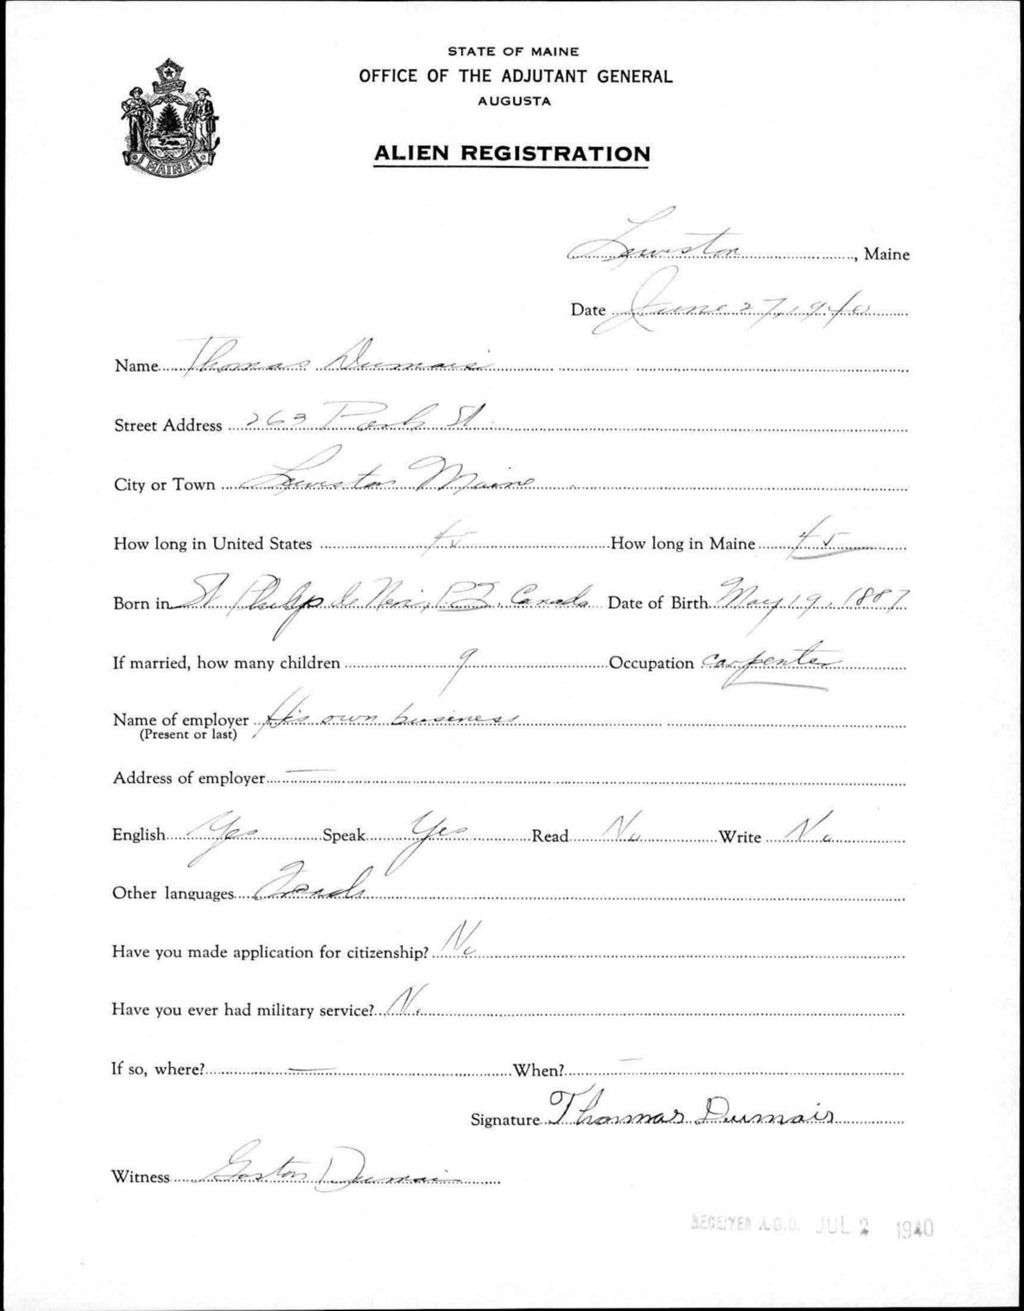 STATE OF MAINE
OFFICE OF THE ADJUTANT GENERAL
AUGUSTA
ALIEN REGISTRATION
MAINE
Lewiston, Maine
Date June 27, 1940
Name Thomas Dumais
Street Address 263 Park St.
City or Town Lewiston Maine
How long in United States 45 How long in Maine 45
Born in St Philip de Neri, P.Q. Canada Date of Birth May 19, 1887
If married, how many children 9 Occupation Carpenter
Name of employer His own business
(Present or last)
Address of employer —
English Yes Speak Yes Read No Write No
Other languages French
Have you made application for citizenship? No
Have you ever had military service? No
If so, where? — When? —
Signature Thomas Dumais
Witness Gaston Dumais
RECEIVED A.G.O. JUL 2 1940